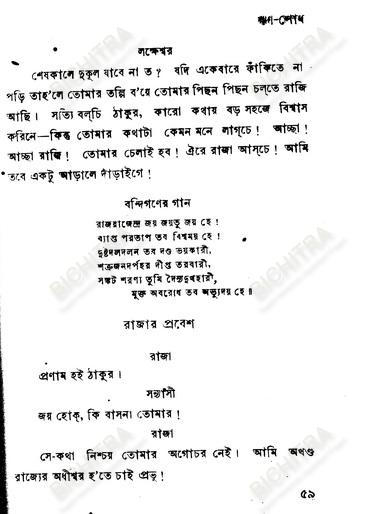 ঋণ-শোধ
লক্ষেশ্বর
শেষকালে দুকূল যাবে না ত? যদি একেবারে ফাঁকিতে না
পড়ি তাহ'লে তোমার তল্পি ব'য়ে তোমার পিছন পিছন চল্‌তে রাজি
আছি। সত্যি বল্‌চি ঠাকুর, কারো কথায় বড় সহজে বিশ্বাস
করিনে—কিন্তু তোমার কথাটা কেমন মনে লাগ্‌চে! আচ্ছা!
আচ্ছা রাজি! তোমার চেলাই হব! ঐরে রাজা আস্‌চে! আমি
তবে একটু আড়ালে দাঁড়াইগে!
বন্দিগণের গান
রাজরাজেন্দ্র জয় জয়তু জয় হে!
ব্যাপ্ত পরতাপ তব বিশ্বময় হে!
দুষ্টদলদলন তব দণ্ড ভয়কারী,
শত্রুজনদর্পহর দীপ্ত তরবারী,
সঙ্কট শরণ্য তুমি দৈন্যদুখহারী,
মুক্ত অবরোধ তব অভ্যুদয় হে॥
রাজার প্রবেশ
রাজা
প্রণাম হই ঠাকুর।
সন্ন্যাসী
জয় হোক্, কি বাসনা তোমার!
রাজা
সে-কথা নিশ্চয় তোমার অগোচর নেই। আমি অখণ্ড
রাজ্যের অধীশ্বর হ'তে চাই প্রভু!
৫৯
BICHITRA